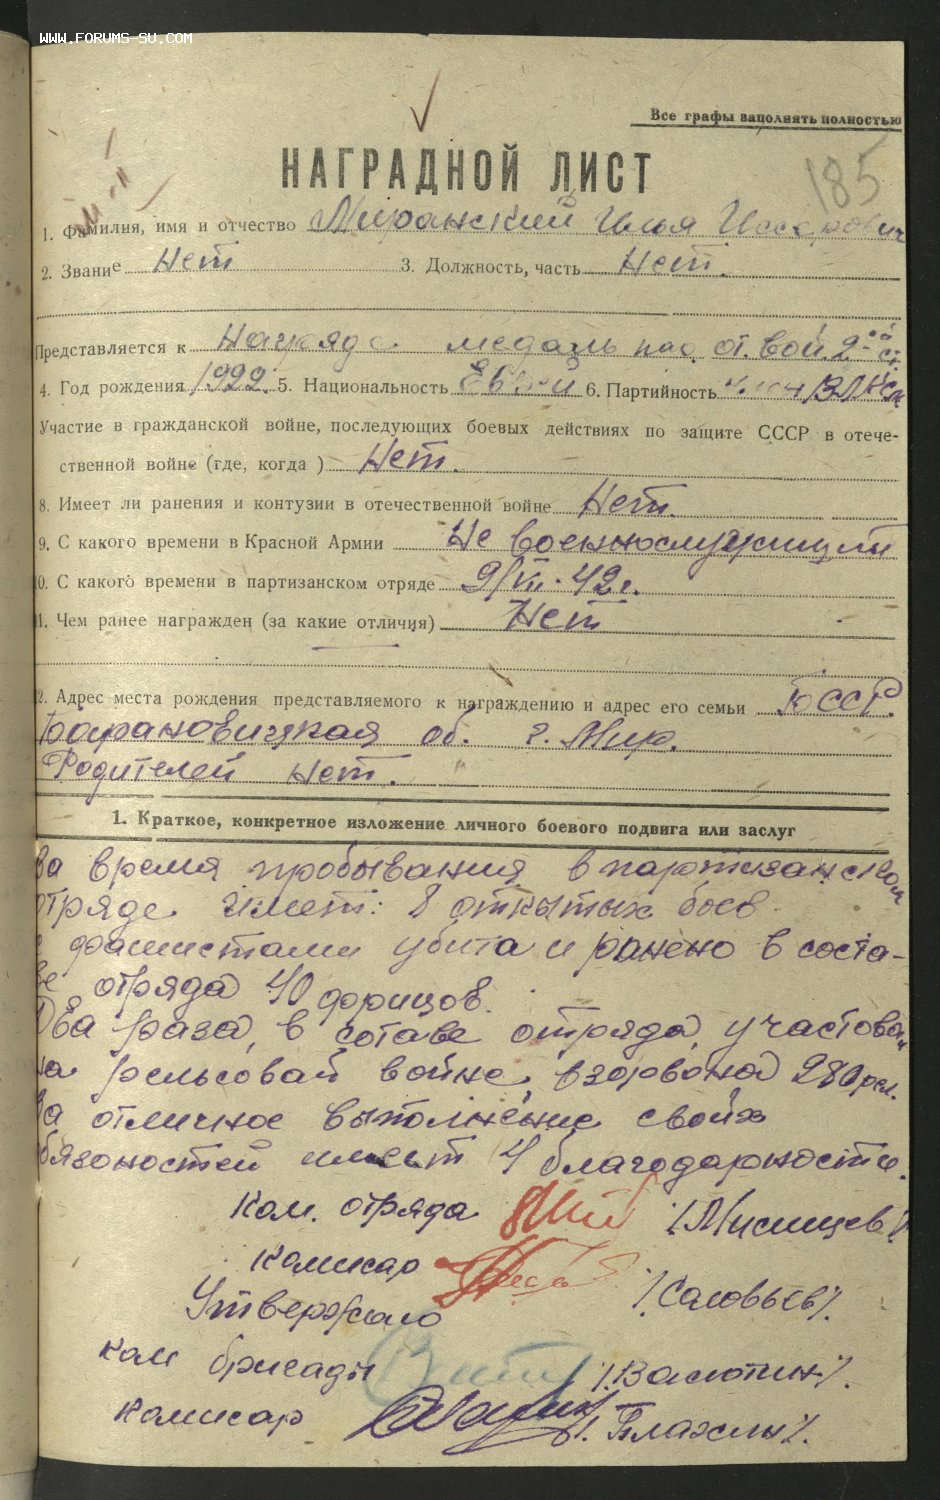 WWW.FORUMS-SU.COM
Все графы заполнять полностью
185
НАГРАДНОЙ ЛИСТ
1. Фамилия, имя и отчество Миранский Илья
2. Звание Нет 3. Должность, часть Нет.
Представляется к Награде медаль пар. от. вой. 2-ой ст.
4. Год рождения 1922 5. Национальность Еврей 6. Партийность ВЛКСМ
Участие в гражданской войне, последующих боевых действиях по защите СССР в отече-
ственной войне (где, когда ) Нет.
8. Имеет ли ранения и контузии в отечественной войне Нет.
9. С какого времени в Красной Армии Не военнослужащий
0. С какого времени в партизанском отряде 42 г.
1. Чем ранее награжден (за какие отличия) Нет
2. Адрес места рождения представляемого к награждению и адрес его семьи БССР.
Барановицкая об. г. Мир.
Родителей нет.
1. Краткое, конкретное изложение личного боевого подвига или заслуг
За время пробывания в партизанском
отряде имеет: 8 открытых боев
с фашистами убито и ранено в соста-
ве отряда 40 фрицов.
Два раза, в сотаве отряда, участвовал
на рельсовой войне, взорвано 280 рел.
За отличное выполнение своих
обязоностей имеет 4 благодарности.
Ком. отряда /Мисищев/
Комисар /Соловьев/.
Утверждаю
Ком бригады /Васютин/.
Комисар /.